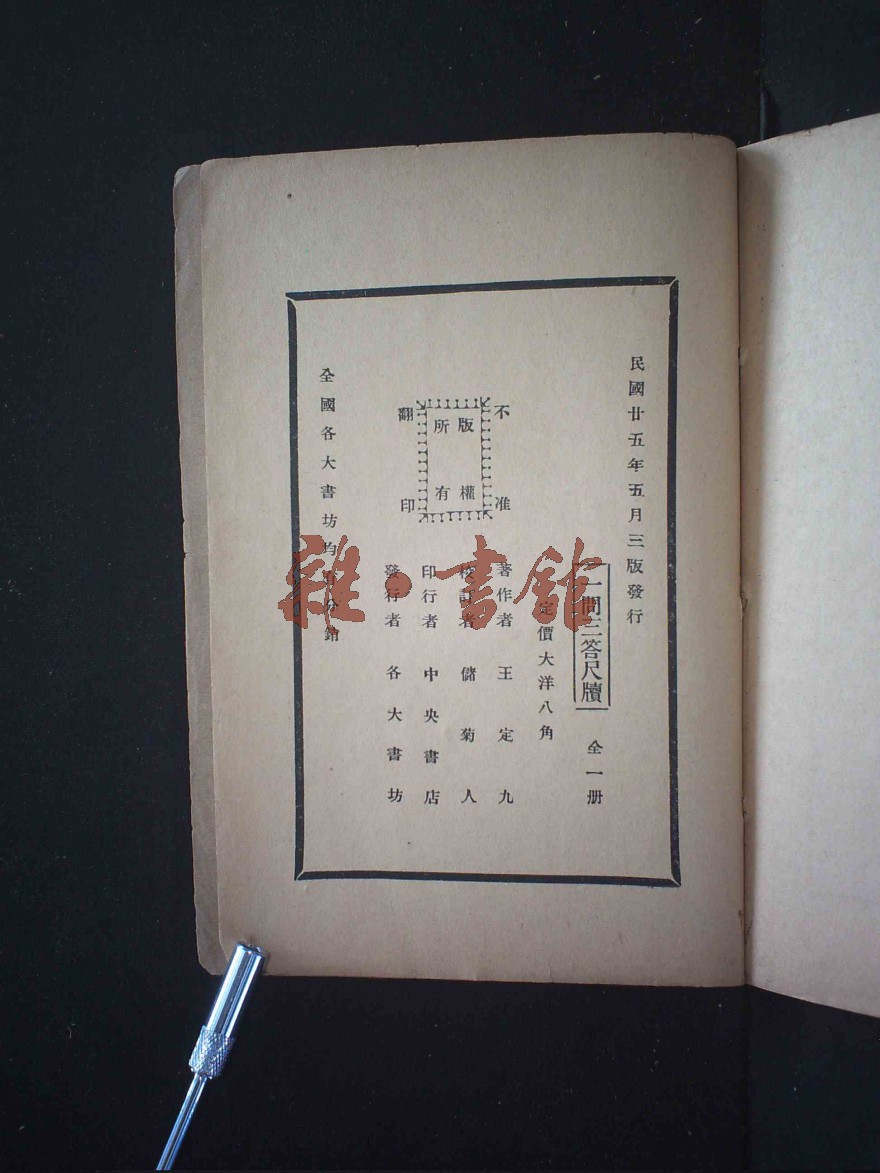 民國廿五年五月三版發行
一問三答尺牘 全一册
定價大洋八角
著作者 王定九
校訂者 儲菊人
印行者 中央書店
發行者 各大書坊
不准
版權
所有
翻印
全國各大書坊均有分銷
雜·書館